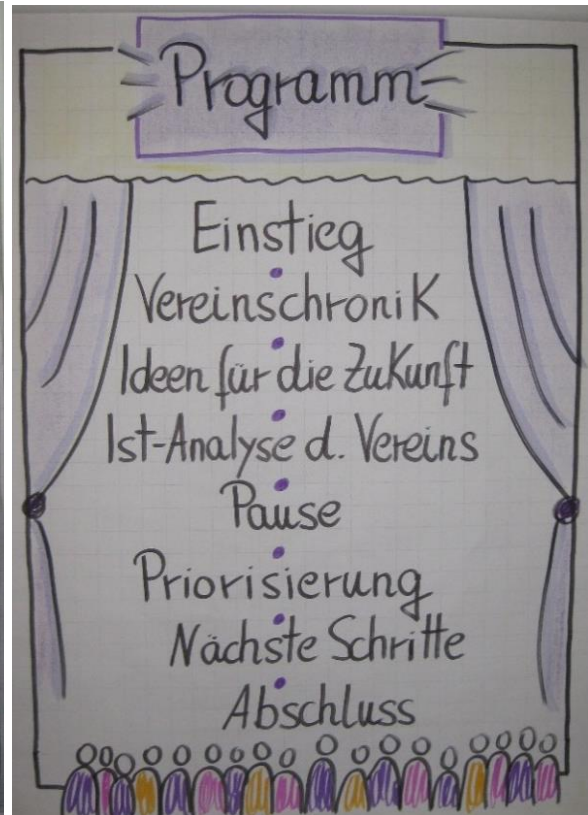 Programm
Einstieg
Vereinschronik
Ideen für die Zukunft
Ist-Analyse d. Vereins
Pause
Priorisierung
Nächste Schritte
Abschluss